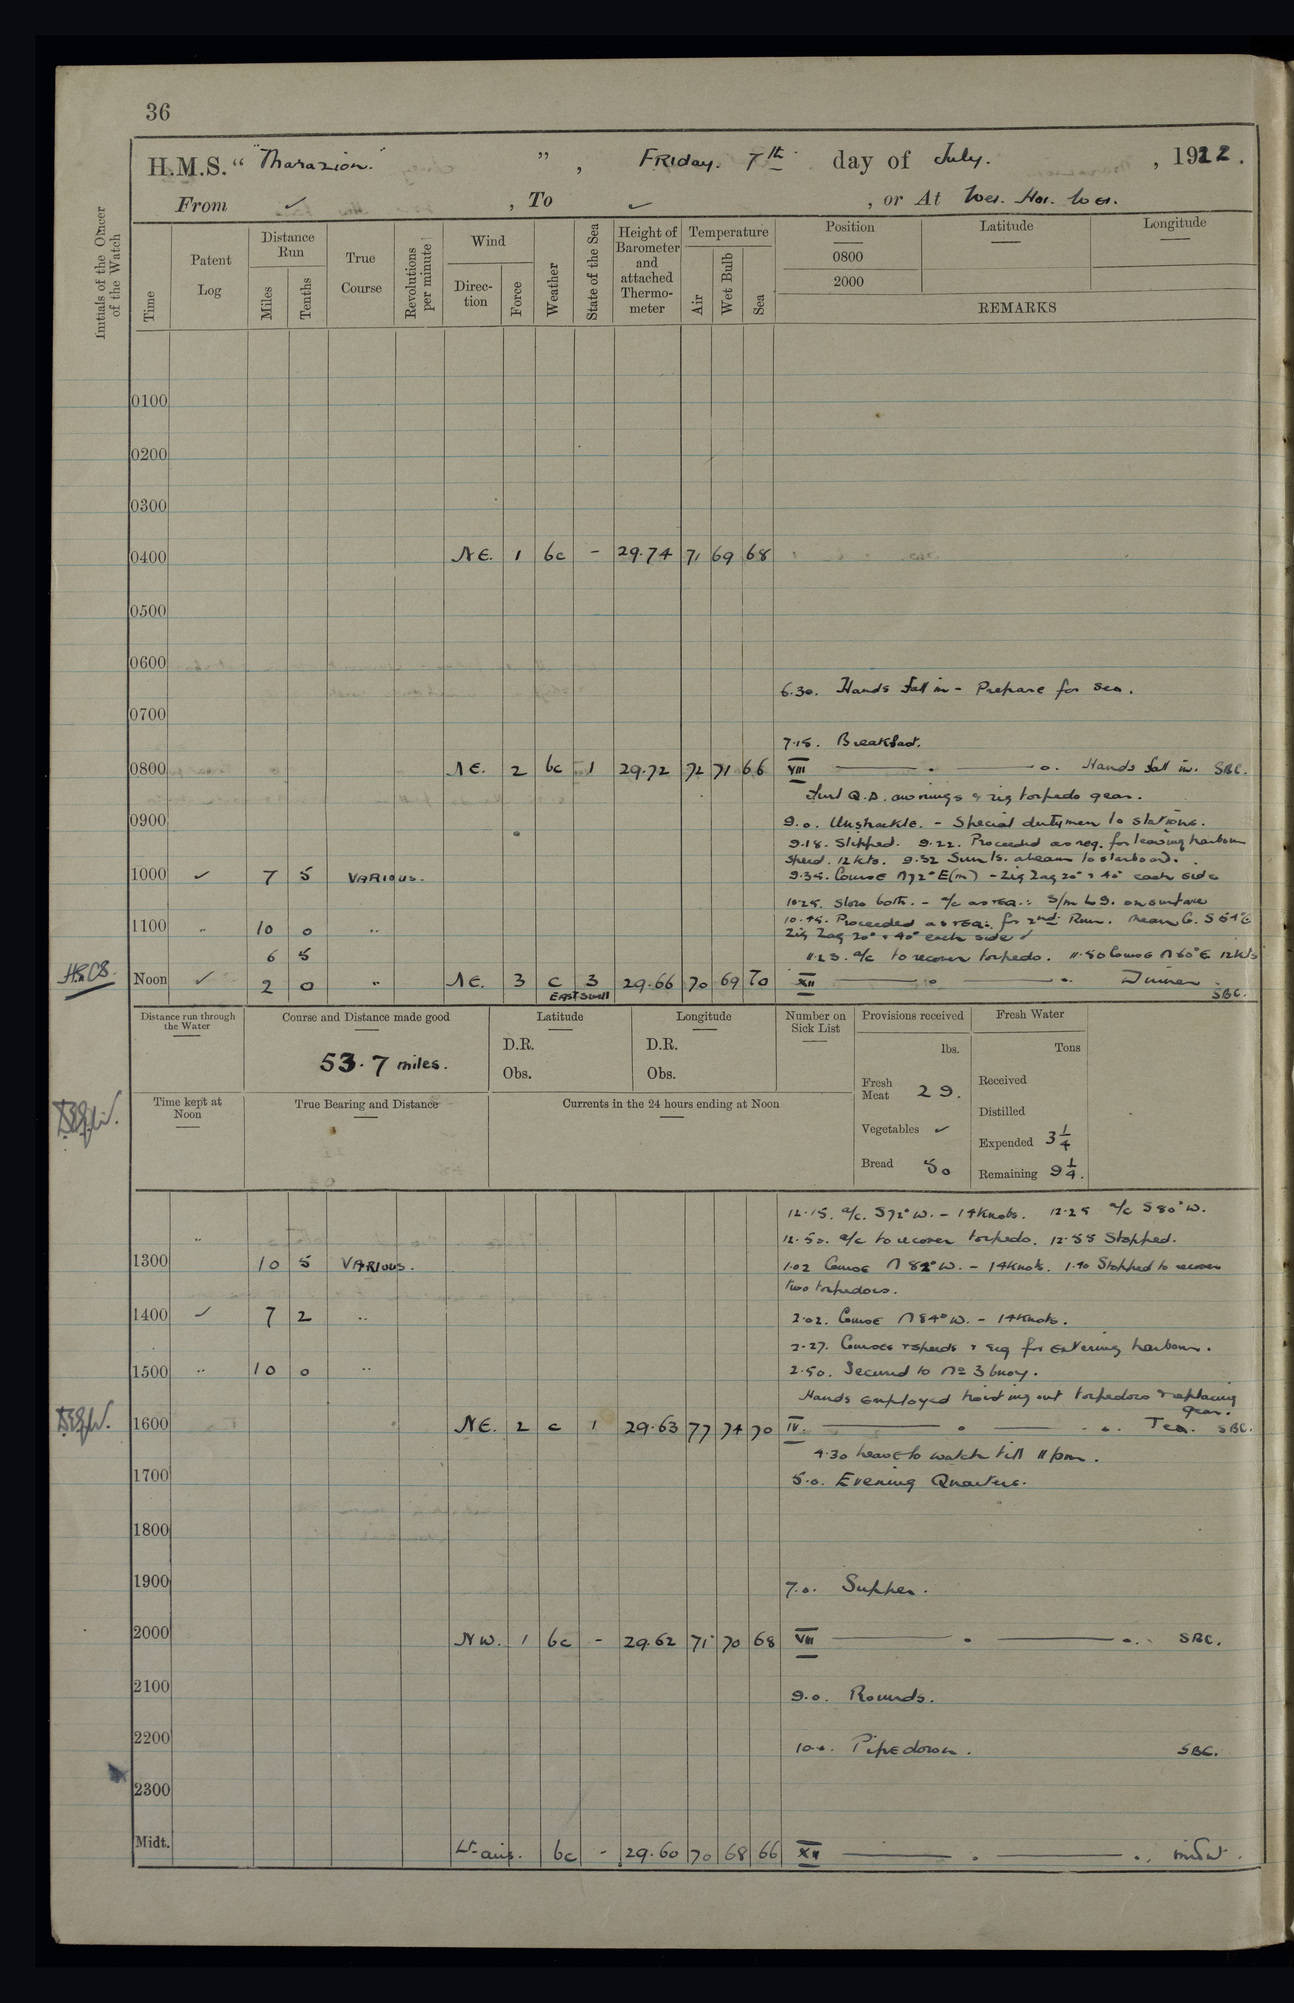 36
H.M.S. " "Marazion." " , Friday. 7th day of July. , 1922.
From ✓ , To ✓ , or At Wei. Hai. Wei.
Initials of the Officer of the Watch
Time
Patent Log
Distance Run
Miles
Tenths
True Course
Revolutions per minute
Wind
Direction
Force
Weather
State of the Sea
Height of Barometer and attached Thermometer
Temperature
Air
Wet Bulb
Sea
Position
0800
2000
Latitude
Longitude
REMARKS
0100
0200
0300
0400 NE. 1 bc - 29.74 71 69 68
0500
0600
6.30. Hands fall in - Prepare for sea.
0700
7.15. Breakfast.
0800 NE. 2 bc 1 29.72 72 71 66 VIII Hands fall in. SBC.
Furl Q.D. awnings & rig torpedo gear.
0900 9.0. Unshackle. - Special dutymen to stations.
9.18. Slipped. 9.22. Proceeded as req. for leaving harbour
Speed. 12 kts. 9.32 Sun Is. abeam to starboard.
1000 ✓ 7 5 VARIOUS. 9.35. Course N72°E(m) - Zig Zag 20° & 40° each side
10.25. Slow both. - a/c as req.: S/m L9. on surface
1100 " 10 0 " 10.45. Proceeded as req: for 2nd Run. Mean C. S 64°E
Zig Zag 20° & 40° each side
6 5 11.23. a/c to recover torpedo. 11.50 Course N60°E 12 kts
Noon ✓ 2 0 " NE. 3 c 3 29.66 70 69 70 XII Dinner.
East Swell SBC.
Distance run through the Water
Course and Distance made good
53.7 miles.
Latitude
D.R.
Obs.
Longitude
D.R.
Obs.
Number on Sick List
Provisions received
lbs.
Fresh Meat 29.
Vegetables ✓
Bread 50
Fresh Water
Tons
Received
Distilled
Expended 3 1/4
Remaining 9 1/4.
Time kept at Noon
True Bearing and Distance
Currents in the 24 hours ending at Noon
12.15. a/c. S72°W. - 14 Knots. 12.25 a/c S80°W.
" 12.50. a/c to recover torpedo. 12.55 Stopped.
1300 10 5 VARIOUS. 1.02 Course N 82°W. - 14 Knots. 1.40 Stopped to recover
two torpedoes.
1400 ✓ 7 2 " 2.02. Course N 84°W. - 14 Knots.
2.27. Courses & speeds as req for entering harbour.
1500 " 10 0 " 2.50. Secured to No 3 buoy.
Hands employed hoisting out torpedoes & replacing
gear.
1600 NE. 2 c 1 29.63 77 74 70 IV. Tea. SBC.
4.30 leave to watch till 11 pm.
1700 5.0. Evening Quarters.
1800
1900 7.0. Supper.
2000 NW. 1 bc - 29.62 71 70 68 VIII SBC.
2100 9.0. Rounds.
2200 10.0. Pipe down. SBC.
2300
Midt. Lt airs. bc - 29.60 70 68 66 XII